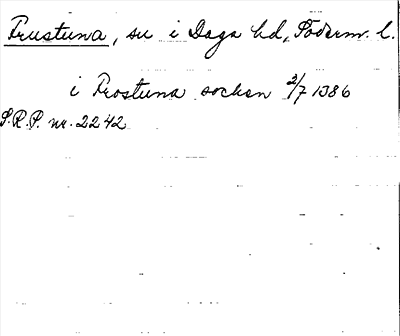 Frustuna, sn i Daga hd, Söderm. l.
i Frostuna socken 2/7 1386
S.R.P. nr. 2242